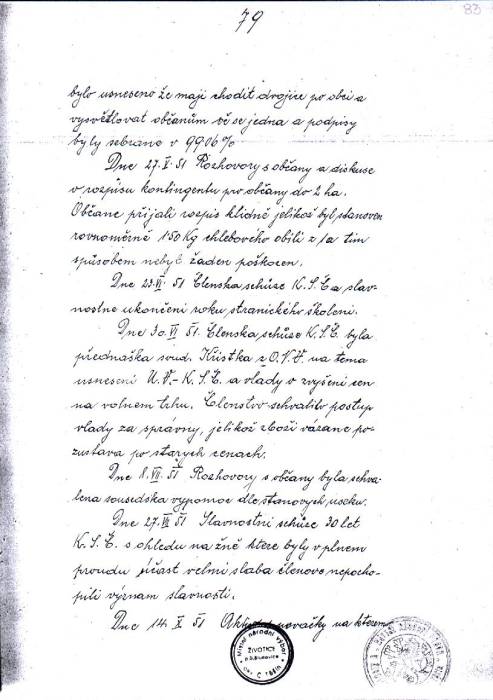 79
83
bylo usneseno že maji chodit dvojice po obci a
vysvětlovat občanům oč se jedna a podpisy
byly sebrano v 99.06%
Dne 27.V. 51 Rozhovory s občany a diskuse
o rozpisu kontingentu pro občany do 2 ha.
Občane přijali rozpis klidně jelikož byl stanoven
rovnoměrně 150 Kg chlebového obili z 1a tim
spůsobem nebyl žaden poškozen.
Dne 23.VI. 51 Členska schůze K.S.Č a slav-
nostne ukončeni roku stranického školeni.
Dne 30.VI 51. Členska schůze K.S.Č. byla
přednaška soud. Kristka z O.N.V. na tema
usneseni U.V.- K.S.Č. a vlady o zvyšeni cen
na volnem trhu. Členstvo schvalilo postup
vlady za správny, jelikož zboži vázane po-
zustava po starych cenach.
Dne 8.VII. 51 Rozhovory s občany byla schva-
lena sousedska vypomoc dle stanovych useku.
Dne 27.VII 51 Slavnostni schůze 30 let
K.S.Č. s ohledu na žně ktere byly v plnem
proudu účast velmi slaba členove nepocho-
pili význam slavnosti.
Dne 14. X 51 na kterem
Místní národní výbor
ŽIVOTICE